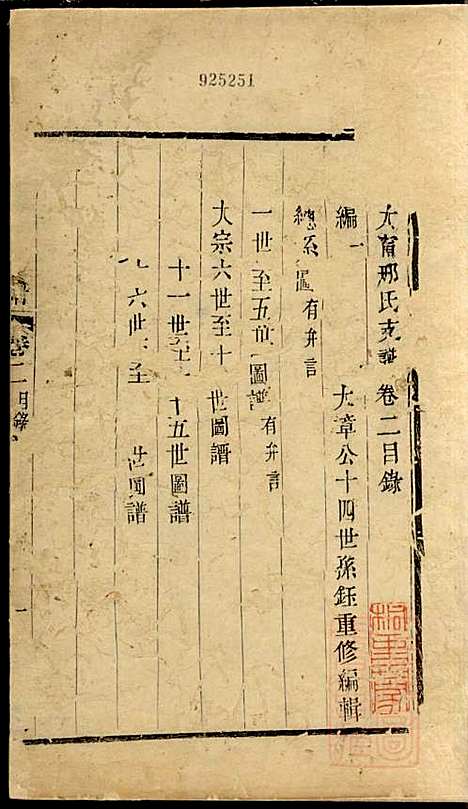 925251
大育邢氏支譜 卷二目錄
編一 大章公十四世孫鈺重修編輯
總系圖有弁言
一世至五世圖譜有弁言
大宗六世至十世圖譜
十一世至十五世圖譜
六世至 世圖譜
卷二目錄
一